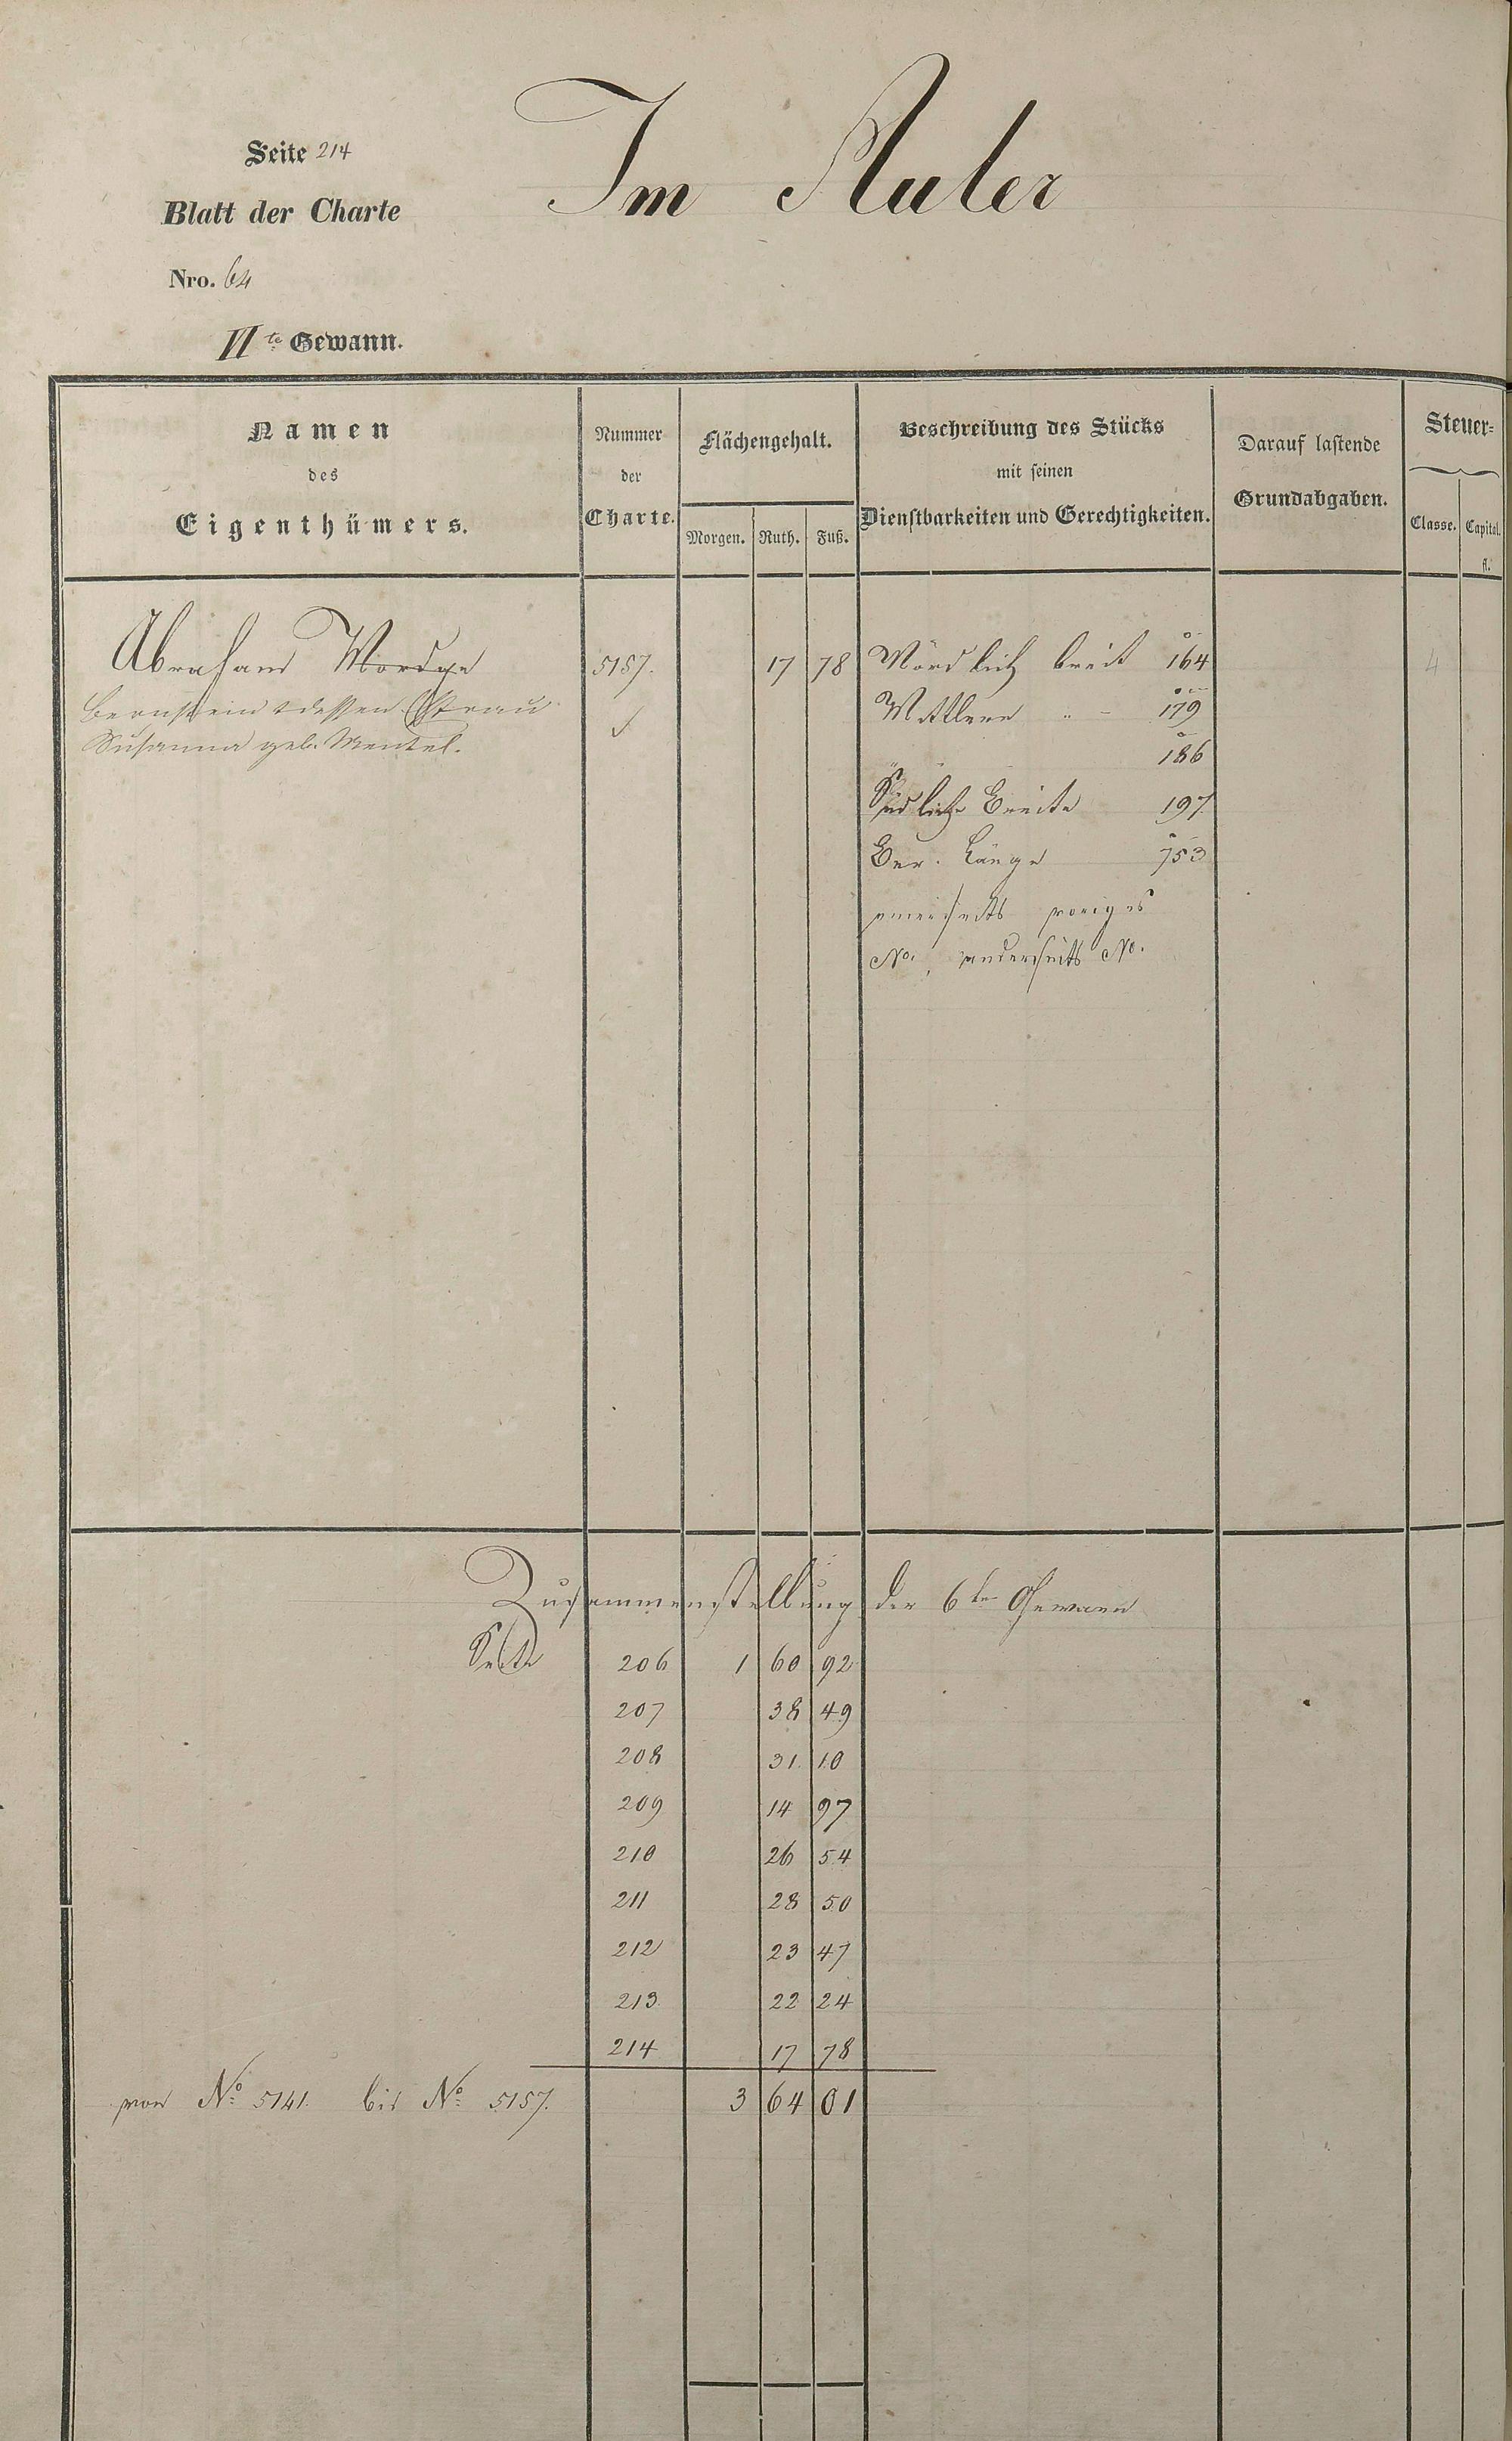 Im Auler
Seite 214
Blatt der Charte
Nro. 64
VIte Gewann.
Namen
des
Eigenthümers.
Nummer
der
Charte.
Flächengehalt.
Morgen. Ruth. Fuß.
Beschreibung des Stücks
mit seinen
Dienstbarkeiten und Gerechtigkeiten.
Darauf lastende
Grundabgaben.
Steuer=
Classe. Capital.
fl.
Abraham 5157. 17 78 Nördlich breit 164 4
Bernstein & dessen Ehefrau
Susanna geb. Mentel.
Mittlere " - 179
186
Südliche Breite 197
Ber. Länge 753
einerseits voriges
No., anderseits No.
Zusammenstellung der 6ten Gewann
Seite 206 1 60 92
207 38 49
208 31 10
209 14 97
210 26 54
211 28 50
212 23 47
213 22 24
214 17 78
von No. 5141. bis No. 5157. 3 64 01